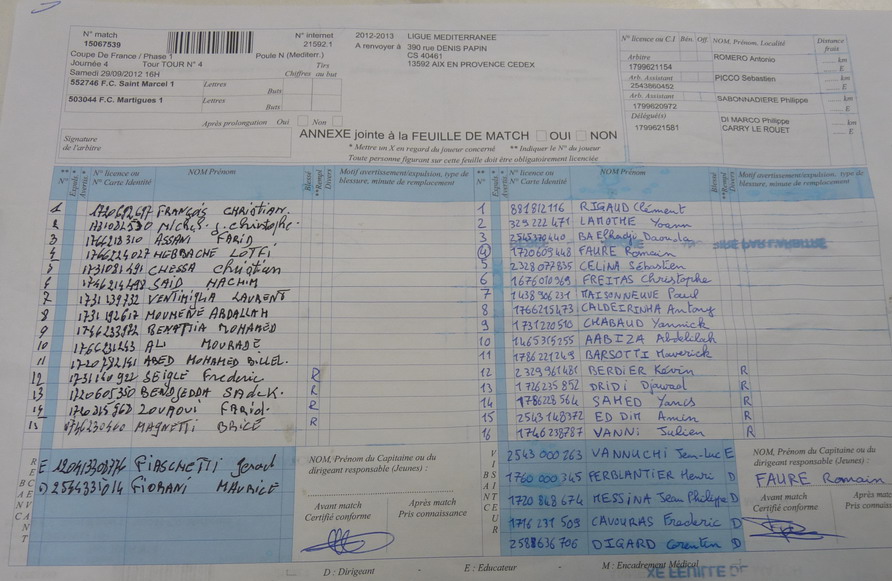 N° match
15067539
N° internet
21592.1
2012-2013 LIGUE MEDITERRANEE
A renvoyer à 390 rue DENIS PAPIN
CS 40461
13592 AIX EN PROVENCE CEDEX
Coupe De France / Phase 1 Poule N (Mediterr.)
Journée 4 Tour TOUR N° 4
Samedi 29/09/2012 16H
Tirs
Chiffres au but
552746 F.C. Saint Marcel 1 Lettres
Buts
503044 F.C. Martigues 1 Lettres
Buts
Après prolongation Oui Non
Signature
de l'arbitre
N° licence ou C.I Bén. Off. NOM, Prénom, Localité Distance
frais
Arbitre ROMERO Antonio km
1799621154 E
Arb. Assistant PICCO Sébastien km
2543860452 E
Arb. Assistant SABONNADIERE Philippe km
1799620972 E
Délégué(s) DI MARCO Philippe km
1799621581 CARRY LE ROUET E
ANNEXE jointe à la FEUILLE DE MATCH OUI NON
* Mettre un X en regard du joueur concerné ** Indiquer le N° du joueur
Toute personne figurant sur cette feuille doit être obligatoirement licenciée
** N° * Expuls * Avertis. N° licence ou N° Carte Identité NOM Prénom Blessé **Rempl Divers Motif avertissement/expulsion, type de blessure, minute de remplacement
1 FRANÇOIS CHRISTIAN
2 J. christophe
3 ASSANI FARID
4 HEBBACHE LOTFI
5 CHESSA christian
6 SAID HACHIM
7 1731139732 VENTIMIGLIA LAURENT
8 1731192617 MOUMENE ABDALLAH
9 MOHAMED
10 ALI MOURADE
11 ABED MOHAMED
12 SEIGLE Frederic R
13 1720605350 R
14 ZOUAOUI FARID R
15 MAGNETTI BRICE R
** N° * Expuls * Avertis. N° licence ou N° Carte Identité NOM Prénom Blessé **Rempl Divers Motif avertissement/expulsion, type de blessure, minute de remplacement
1 881812116 RIGAUD Clément
2 329222471 LAMOTHE Yoann
3 2545370440 BA Elhadji
4 1720609448 FAURE Romain
5 2328077835 CELINA Sébastien
6 1676010969 FREITAS Christophe
7 1438906231 MAISONNEUVE Paul
8 1766215473 CALDEIRINHA Antony
9 1731220510 CHABAUD Yannick
10 1465315255 AABIZA Abdelilah
11 1786221249 BARSOTTI Maverick
12 2329961481 BERDIER Kévin R
13 1726235852 DRIDI Djawad R
14 1786228564 SAMED Yanis R
15 2543148372 ED DIM Amin R
16 1746238787 VANNI Julien R
BANC RECEVANT
E
D 2544335014 FIORANI MAURICE
NOM, Prénom du Capitaine ou du
dirigeant responsable (Jeunes) :
Avant match
Certifié conforme
Après match
Pris connaissance
BANC VISITEUR
2543 000 263 VANNUCHI Jean-Luc E
1760 000 345 FERBLANTIER Henri D
1720 848 674 MESSINA Jean Philippe D
1716 231 509 CAVOURAS Frederic D
2588636706 DIGARD Corentin D
NOM, Prénom du Capitaine ou du
dirigeant responsable (Jeunes) :
FAURE Romain
Avant match
Certifié conforme
Après match
Pris connaissance
D : Dirigeant - E : Educateur - M : Encadrement Médical